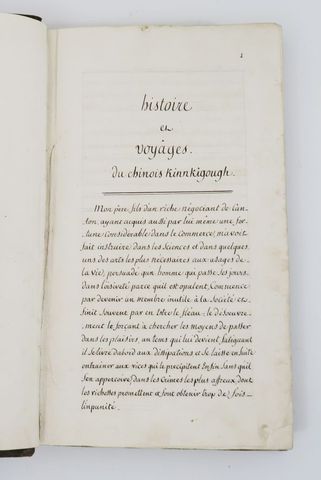 1
histoire
et
voyages.
du chinois Kinnkigough.
Mon pere fils dun riche négociant de Can-
ton, ayant acquis aussi par lui même une for-
tune Considérable dans le Commerce, m'avoit
fait instruire dans les Sciences et dans quelques
uns des arts les plus necessaires aux usages de
la Vie, persuadé qun homme qui passe ses jours
dans loisiveté parce quil est opulent, Commence
par devenir un membre inutile à la Société et
finit Souvent par en Estre le fléau. le désoeuvre-
ment le forçant à chercher les moyens de passer
dans les plaisirs, un tems qui lui devient fatiguant
il se livre dabord aux dissipations et se laisse ensuite
entrainer aux vices qui le précipitent Enfin Sans quil
Sen apperçoive, dans les Crimes les plus affreux dont
les richesses promettent et font obtenir trop de fois
limpunité.